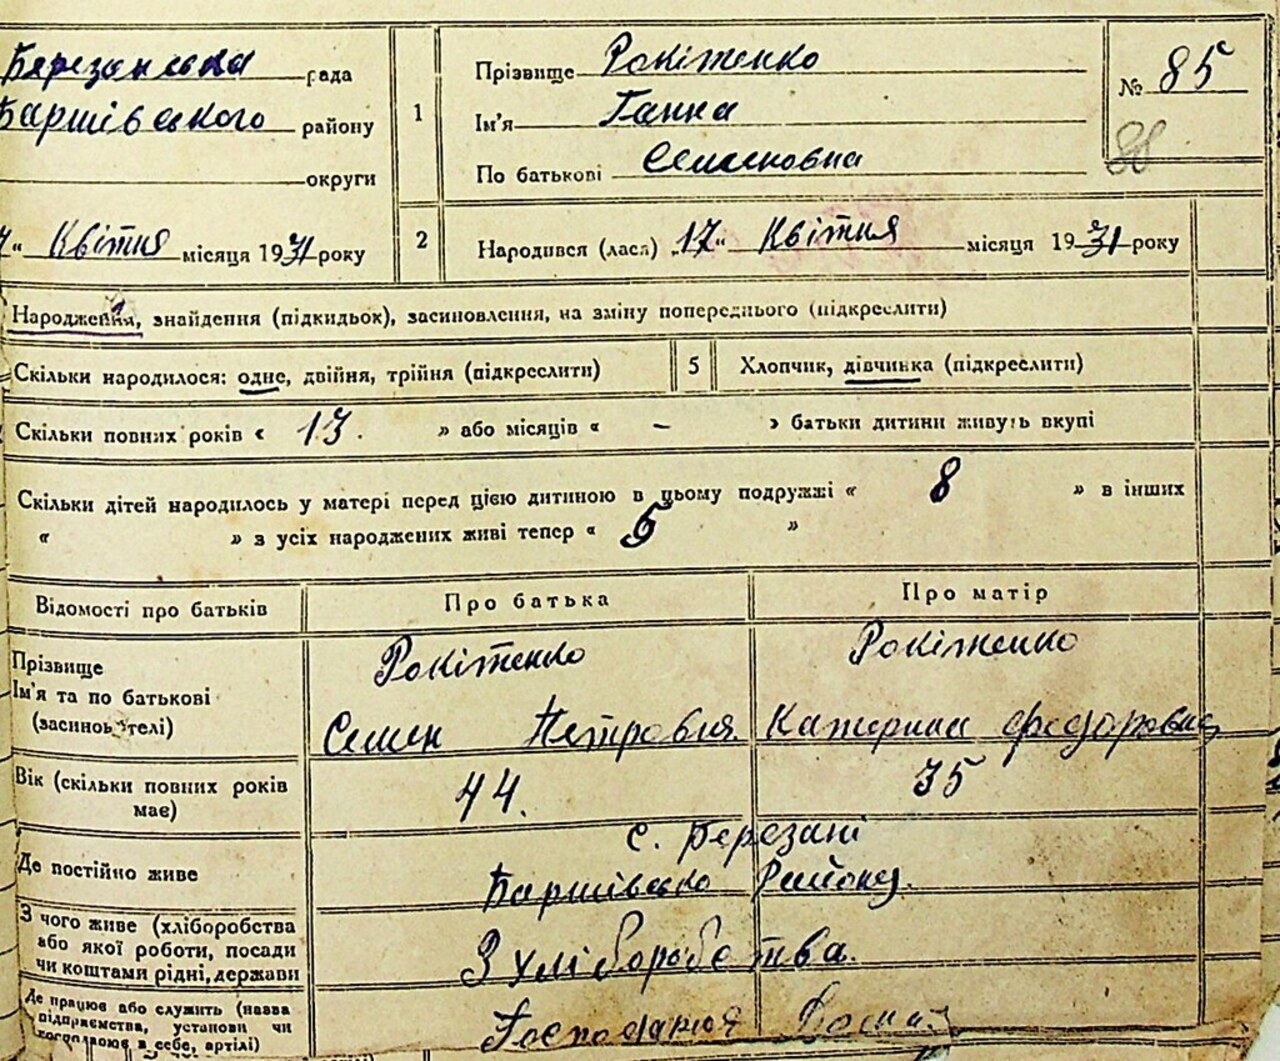 Березанська рада
Баришівського району
округи
“ Квітня місяця 1931 року
1
Прізвище Рокітенко
Ім'я Ганна
По батькові Семеновна
№ 85
88
2
Народився (лася) „17“ Квітня місяця 1931 року
Народження, знайдення (підкидьок), засиновлення, на зміну попереднього (підкреслити)
Скільки народилося: одне, двійня, трійня (підкреслити)
5 Хлопчик, дівчинка (підкреслити)
Скільки повних років « 13. » або місяців « – » батьки дитини живуть вкупі
Скільки дітей народилось у матері перед цією дитиною в цьому подружжі « 8 » в інших
« » з усіх народжених живі тепер « 5 »
Відомості про батьків
Про батька
Про матір
Прізвище
Ім'я та по батькові
(засиновителі)
Рокітенко
Семен Петрович
Рокітенко
Катерина Федоровна
Вік (скільки повних років
має)
44.
35
Де постійно живе
с. Березані
Баришівсько Району.
З чого живе (хліборобства
або якої роботи, посади
чи коштами рідні, держави
З хліборобства.
Де працює або служить (назва
підприємства, установи чи
господарює в себе, артілі)